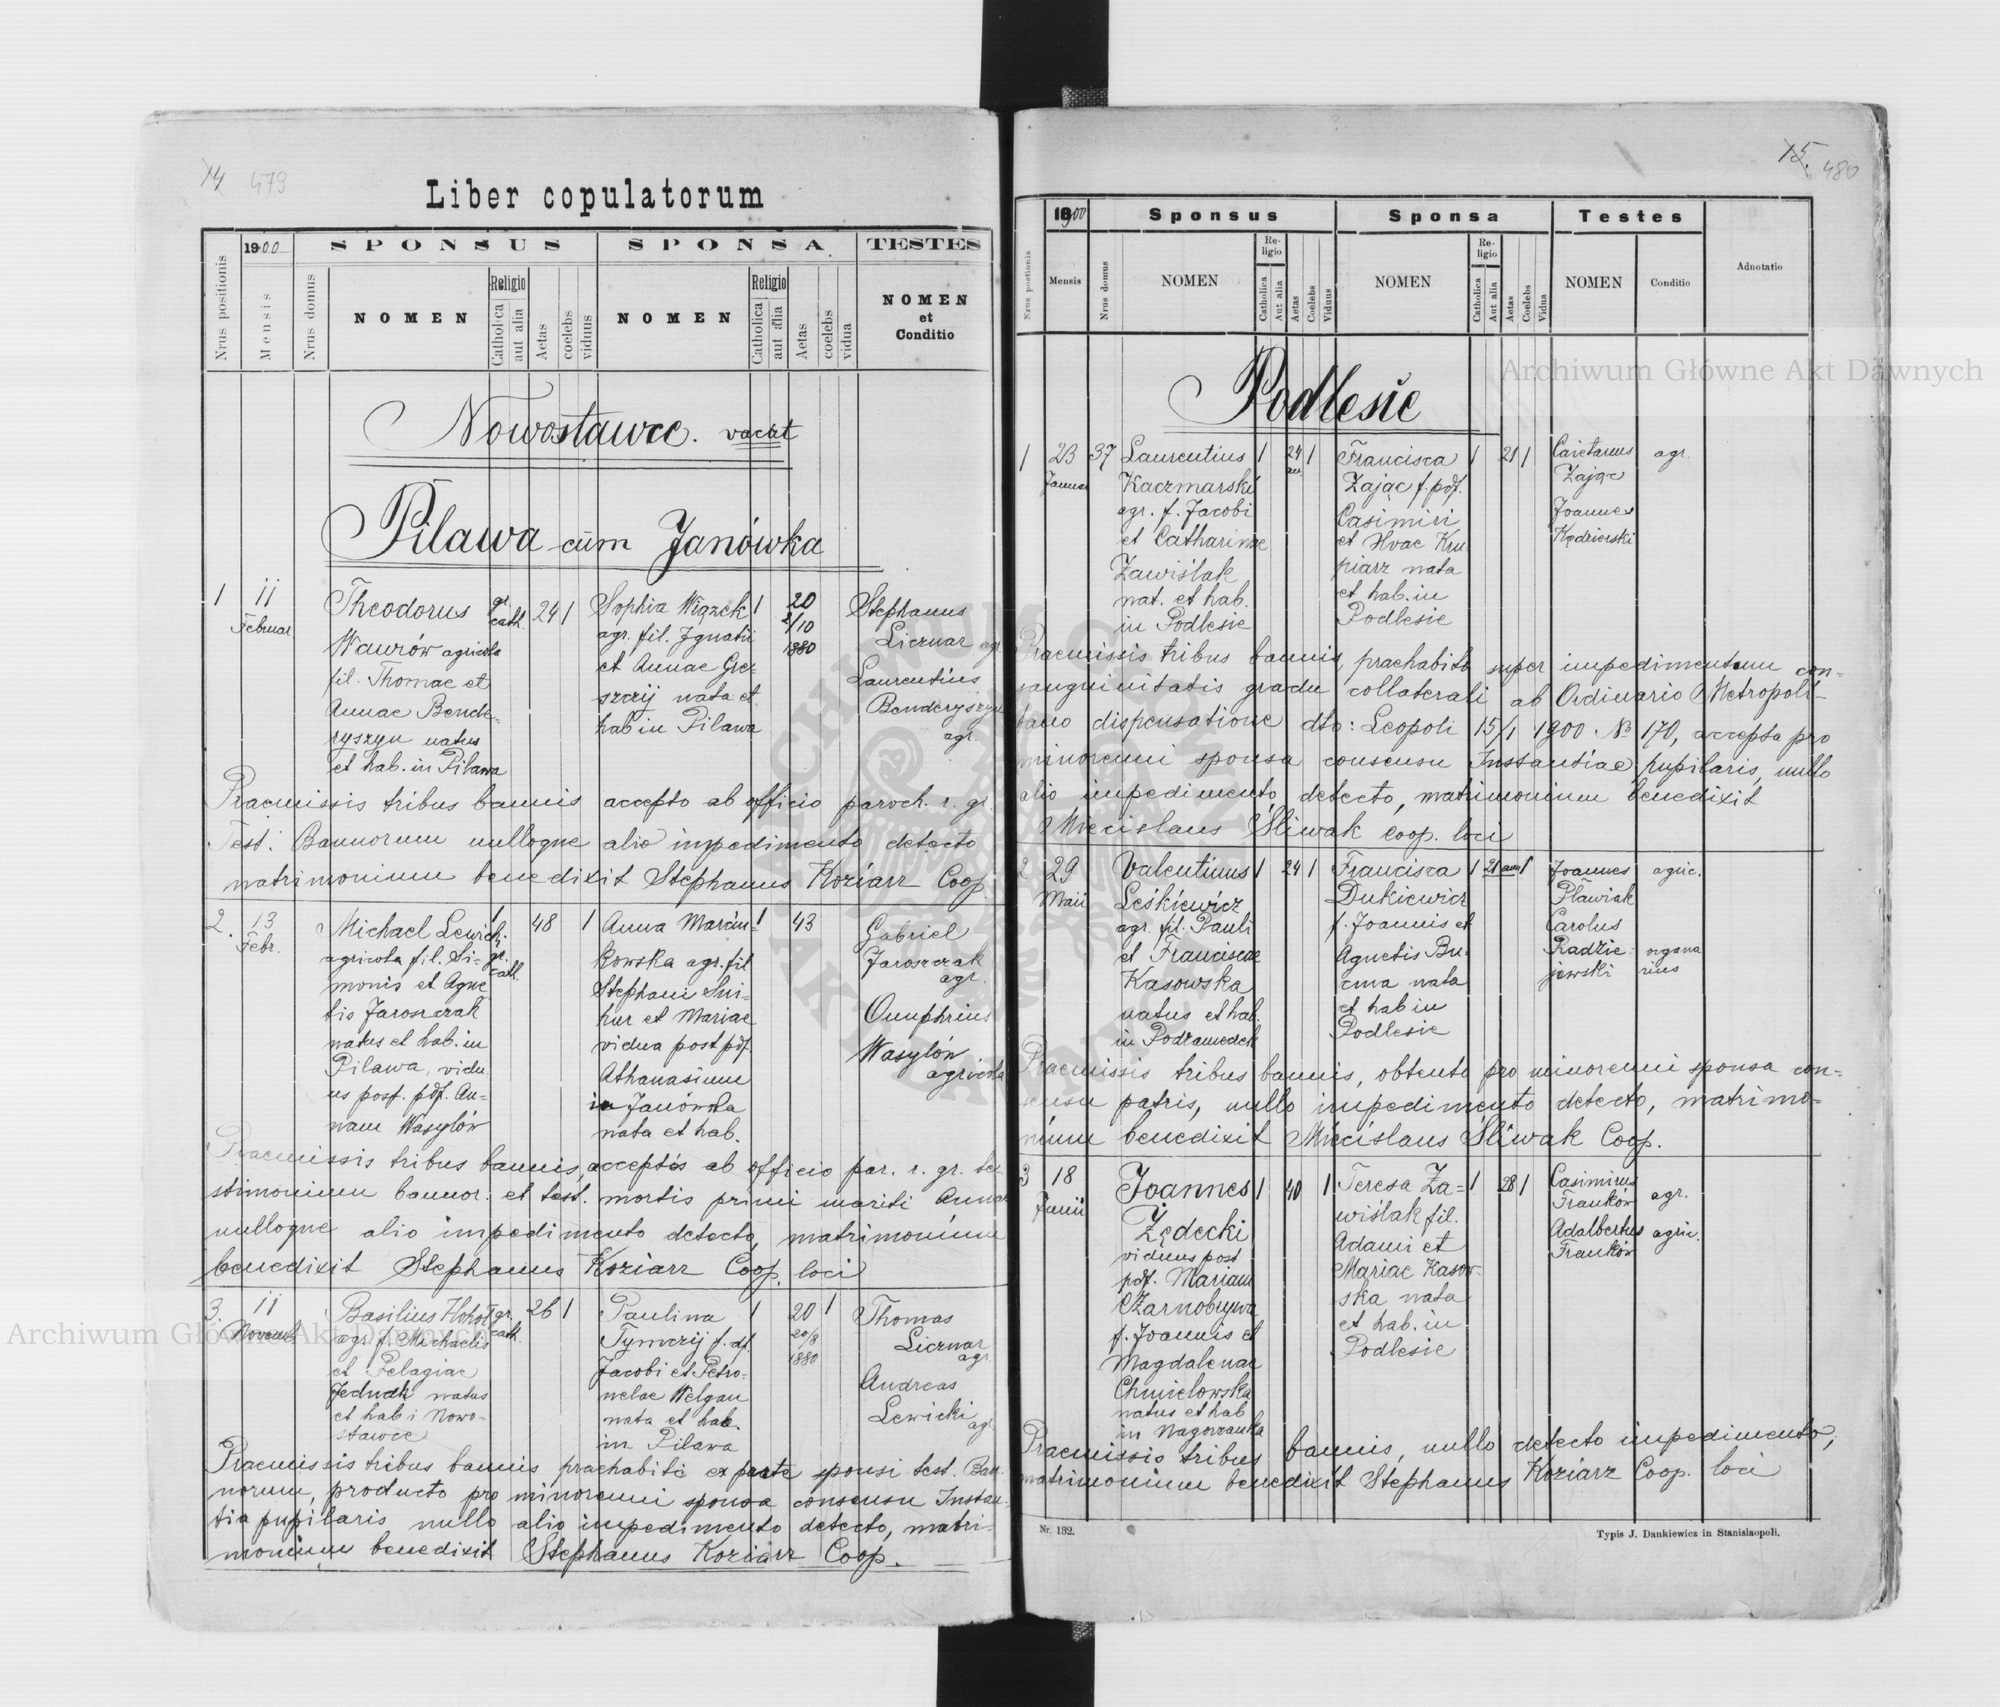 14 479
Liber copulatorum
Nrus positionis
1900
Mensis
Nrus domus
SPONSUS
NOMEN
Religio
Catholica
aut alia
Aetas
coelebs
vidus
SPONSA
NOMEN
Religio
Catholica
aut alia
Aetas
coelebs
vidua
TESTES
NOMEN
et
Conditio
Nowostawce. vacat
Pilawa cum Janówka
1
11
Februar
Theodorus
Waurów agricola
fil. Thomae et
Annae Bende-
ryszyn natus
et hab. in Pilawa
gr.
cath.
24 1
Sophia Wiązek
agr. fil. Ignatii
et Annae Grze-
szczij nata et
hab in Pilawa
1
20
2/10
1880
Stephanus
Licznar agr
Laurentius
Benderyszyn
agr.
Praemissis tribus bannis accepto ab officio paroch. r. gr.
Test. Bannorum nulloque alio impedimento detecto
matrimonium benedixit Stephanus Koziarz Coop.
2.
13
Febr.
Michael Lewicki
agricola fil. Si-
monis et Agne
tis Jaroszczak
natus et hab. in
Pilawa, vidu
us post. pdf. An-
nam Wasylów
1
gr.
cath.
48 1
Anna Marcin-
kowska agr. fil
Stephani Sni-
hur et Mariae
vidua post pdf.
Athanasium
in Janówka
nata et hab.
1
43
Gabriel
Jaroszczak
agr.
Onuphrius
Wasylów
agricola
Praemissis tribus bannis, acceptis ab officio par. r. gr. te-
stimonium bannor. et test. mortis primi mariti Annae
nulloque alio impedimento detecto, matrimonium
benedixit Stephanus Koziarz Coop. loci
3.
11
Novemb
Basilius Hohol
agr. f. Michaelis
et Pelagiae
Jednak natus
et hab i Nowo-
stawce
gr.
cath.
26 1
Paulina
Tymczij f. df.
Jacobi et Petro-
nelae Welgan
nata et hab.
in Pilawa
1
20 1
20/8
1880
Thomas
Licznar
agr.
Andreas
Lewicki
agr.
Praemissis tribus bannis praehabito ex parte sponsi test. Ban-
norum, producto pro minorenni sponsa consensu Instan-
tia pupilaris nullo alio impedimento detecto, matri-
monium benedixit Stephanus Koziarz Coop.
15. 480
Nrus positionis
1900
Mensis
Nrus domus
Sponsus
NOMEN
Re-
ligio
Catholica
Aut alia
Aetas
Coelebs
Viduus
Sponsa
NOMEN
Re-
ligio
Catholica
Aut alia
Aetas
Coelebs
Vidua
Testes
NOMEN
Conditio
Adnotatio
Podlesie
1
23
Januar
37
Laurentius
Kaczmarski
agr. f. Jacobi
et Catharinae
Zawiślak
nat. et hab.
in Podlesie
1
24 1
an
Francisca
Zając f. pdf.
Casimiri
et Hvae Kru-
piarz nata
et hab. in
Podlesie
1
21 1
Caietanus
Zając
Joannes
Kędzierski
agr.
Praemissis tribus bannis, praehabita super impedimentum con-
sanguinitatis gradu collaterali ab Ordinario Metropoli-
tano dispensatione dto: Leopoli 15/1 1900 No 170, accepta pro
minorenni sponsa consensu Instantiae pupilaris, nullo
alio impedimento detecto, matrimonium benedixit
Miecislaus Śliwak coop. loci
2
29
Maii
Valentinus
Leśkiewicz
agr. fil. Pauli
et Franciscae
Kasowska
natus et hab.
in Podzameczek
1
24 1
Francisca
Dukiewicz
f. Joannis et
Agnetis Bu-
cma nata
et hab in
Podlesie
1
21 an 1
Joannes
Pławiak
Carolus
Radzie-
jewski
agric.
organa
rius
Praemissis tribus bannis, obtento pro minorenni sponsa con-
sensu patris, nullo impedimento detecto, matrimo-
nium benedixit Miecislaus Śliwak Coop.
3
18
Junii
Joannes
Zędecki
viduus post
pdf. Mariam
Czarnobrywa
f. Joannis et
Magdalenae
Chmielowska
natus et hab
in Nagorzanka
1
40 1
Teresa Za-
wiślak fil.
Adami et
Mariae Kasow-
ska nata
et hab. in
Podlesie
1
28 1
Casimirus
Franków
Adalbertus
Franków
agr.
agric.
Praemissis tribus bannis, nullo detecto impedimento,
matrimonium benedixit Stephanus Koziarz Coop. loci
Nr. 132.
Typis J. Dankiewicz in Stanislaopoli.
Archiwum Główne Akt Dawnych
Archiwum Główne Akt Dawnych